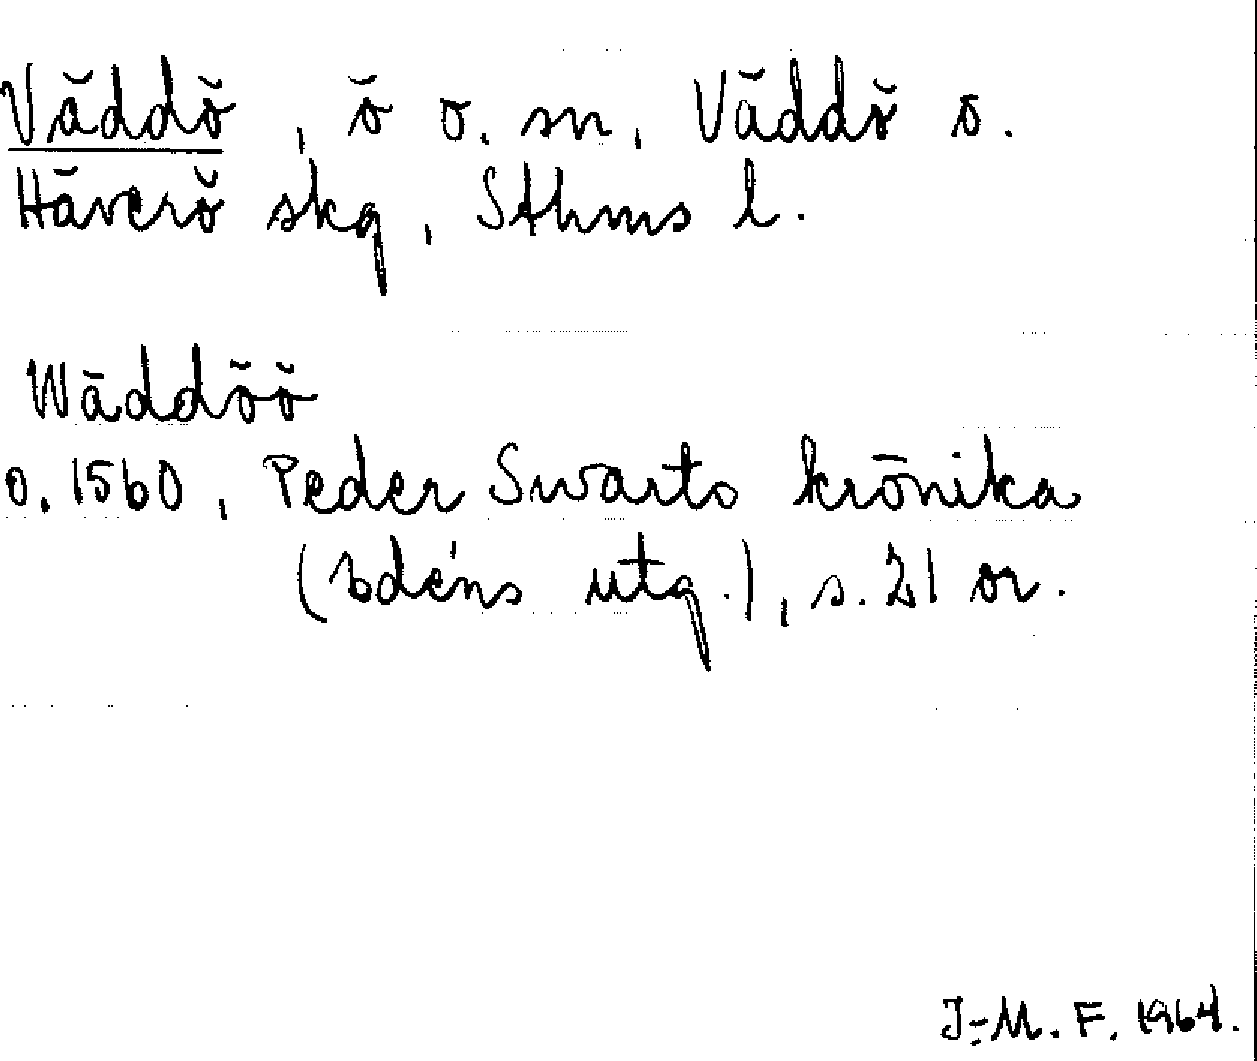 Väddö, ö o. sn, Väddö o.
Häverö skg, Sthms l.
Wäddöö
o. 1560, Peder Swarts krönika
(Edéns utg.), s. 21 or.
J-M. F. 1964.